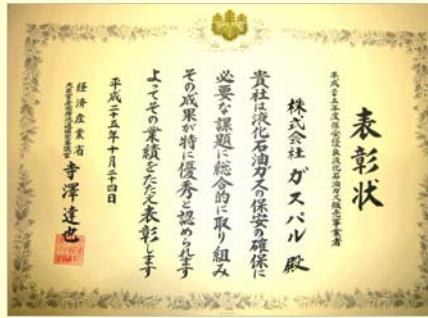 表彰状
平成二十五年度保安優良液化石油ガス販売事業者
株式会社 ガスパル 殿
貴社は液化石油ガスの保安の確保に
必要な課題に総合的に取り組み
その成果が特に優秀と認められます
よってその業績をたたえ表彰します
平成二十五年十月二十四日
経済産業省
寺澤達也